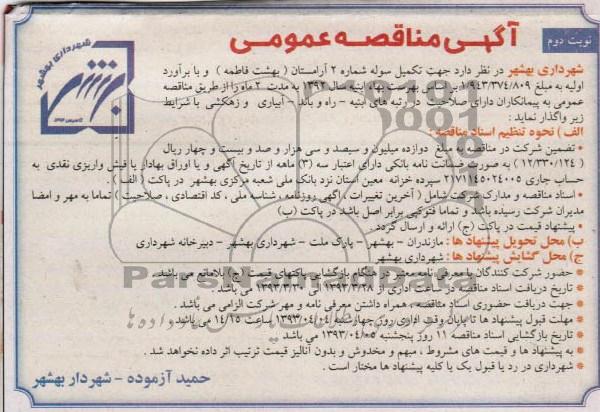 نوبت دوم
آگهی مناقصه عمومی
شهرداری بهشهر
شهرداری بهشهر در نظر دارد جهت تکمیل سوله شماره ۲ آرامستان ( بهشت فاطمه ) و با برآورد
اولیه به مبلغ ۱/۹۴۳/۳۷۴/۸۰۹ بر اساس فهرست بهاء ابنیه سال ۱۳۹۲ به مدت ۲ ماه را از طریق مناقصه
عمومی به پیمانکاران دارای صلاحیت در رتبه های ابنیه - راه و باند - آبیاری و زهکشی با شرایط
زیر واگذار نماید :
الف ) نحوه تنظیم اسناد مناقصه :
- تضمین شرکت در مناقصه به مبلغ دوازده میلیون و سیصد و سی هزار و صد و بیست و چهار ریال
( ۱۲/۳۳۰/۱۲۴ ) به صورت ضمانت نامه بانکی دارای اعتبار سه (۳) ماهه از تاریخ آگهی و یا اوراق بهادار یا فیش واریزی نقدی به
حساب جاری ۲۱۷۱۱۴۵۰۲۴۰۰۵ سپرده خزانه معین استان نزد بانک ملی شعبه مرکزی بهشهر در پاکت ( الف ) .
• اسناد مناقصه و مدارک شرکت شامل ( آخرین تغییرات ، آگهی روزنامه ، شناسه ملی ، کد اقتصادی ، صلاحیت ) تماما به مهر و امضا
مدیران شرکت رسیده باشد و تماما فتوکپی برابر اصل باشد در پاکت (ب)
• پیشنهاد قیمت در پاکت (ج) ارائه و ارسال گردد .
ب) محل تحویل پیشنهاد ها : مازندران - بهشهر - پارک ملت - شهرداری بهشهر - دبیرخانه شهرداری
ج) محل گشایش پیشنهاد ها : شهرداری بهشهر
• حضور شرکت کنندگان با معرفی نامه معتبر در هنگام بازگشایی پاکتهای قیمت (ج) بلامانع می باشد .
• تاریخ دریافت اسناد مناقصه در ساعت اداری از ۱۳۹۳/۳/۲۸ الی ۱۳۹۳/۳/۳۰ می باشد .
• جهت دریافت حضوری اسناد مناقصه ، همراه داشتن معرفی نامه و مهر شرکت الزامی می باشد .
• مهلت قبول پیشنهاد ها تا پایان وقت اداری روز چهارشنبه ۱۳۹۳/۰۴/۰۴ ساعت ۱۴/۱۵ می باشد .
• تاریخ بازگشایی اسناد مناقصه ۱۱ روز پنجشنبه ۱۳۹۳/۰۴/۰۵ می باشد
• به پیشنهاد ها و قیمت های مشروط ، مبهم و مخدوش و بدون آنالیز قیمت ترتیب اثر داده نخواهد شد .
• شهرداری در رد یا قبول یک یا کلیه پیشنهاد ها مختار است .
حمید آزموده - شهردار بهشهر